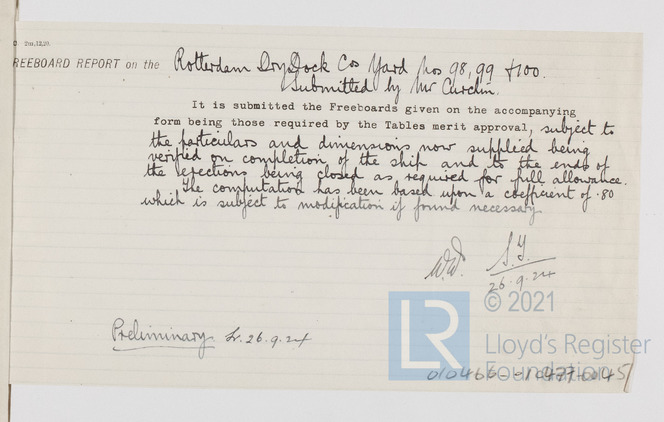 2m,12,29.
REEBOARD REPORT on the Rotterdam DryDock Cos Yard Nos 98, 99 & 100.
Submitted by Mr Curdin.
It is submitted the Freeboards given on the accompanying
form being those required by the Tables merit approval, subject to
the particulars and dimensions now supplied being
verified on completion of the ship and to the ends of
the erections being closed as required for full allowance.
The computation has been based upon a coefficient of .80
which is subject to modification if found necessary.
W.W. S.Y.
26.9.24
Preliminary. Lr. 26.9.24
LR © 2021
Lloyd's Register
Foundation
010466-010477-0045